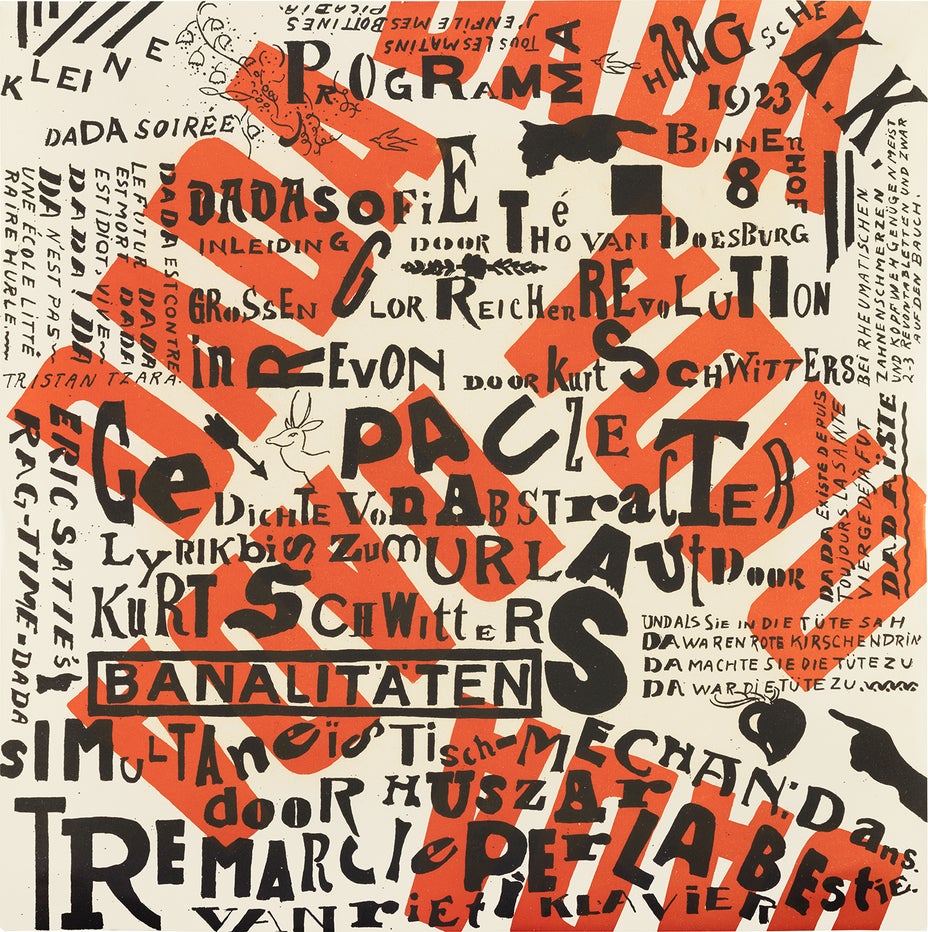 KLEINE
DADA SOIRÉE
TOUS LES MATINS
J'ENFILE MES BOTTINES
PICABIA.
PROGRAMMA
HAAGSCHE K.K.K.
1923
BINNENHOF
8
DADASOFIE
INLEIDING DOOR THÉO VAN DOESBURG
GROSSEN GLORREICHEN REVOLUTION
in REVON DOOR Kurt SCHWITTERS.
DADA EST CONTRE
LE FUTUR. DADA
EST MORT. DADA
EST IDIOT. VIVE
DADA! DADA
DA N'EST PAS
UNE ÉCOLE LITTÉ
RAIRE HURLE
TRISTAN TZARA.
BEI RHEUMATISCHEN
ZAHNENSCHMERZEN
UND KOPFWEH GENÜGEN MEIST
2-3 REVONTABLETTEN UND ZWAR
AUF DEN BAUCH.
ERIC SATIE'S
RAG-TIME-DADA
GePAUZEERD
Dichte Von ABSTracTER
LyRIK bis Zum URLAUt DOOR
KuRT SCHWittERS
DADA EXISTE DEPUIS
TOUJOURS LA SAINTE
VIERGE DÉJÀ FUT
DADAÏSTE
BANALITÄTEN
UND ALS SIE IN DIE TÜTE SAH
DA WAREN ROTE KIRSCHEN DRIN
DA MACHTE SIE DIE TÜTE ZU
DA WAR DIE TÜTE ZU.
SIMULTANeïsTisch-MECHAN: Dans.
dooR HUSZAR
TRE MARCIe PER LA BEstie.
VAN rieti KLAVIER
DADA
DADA
DADA
DADA